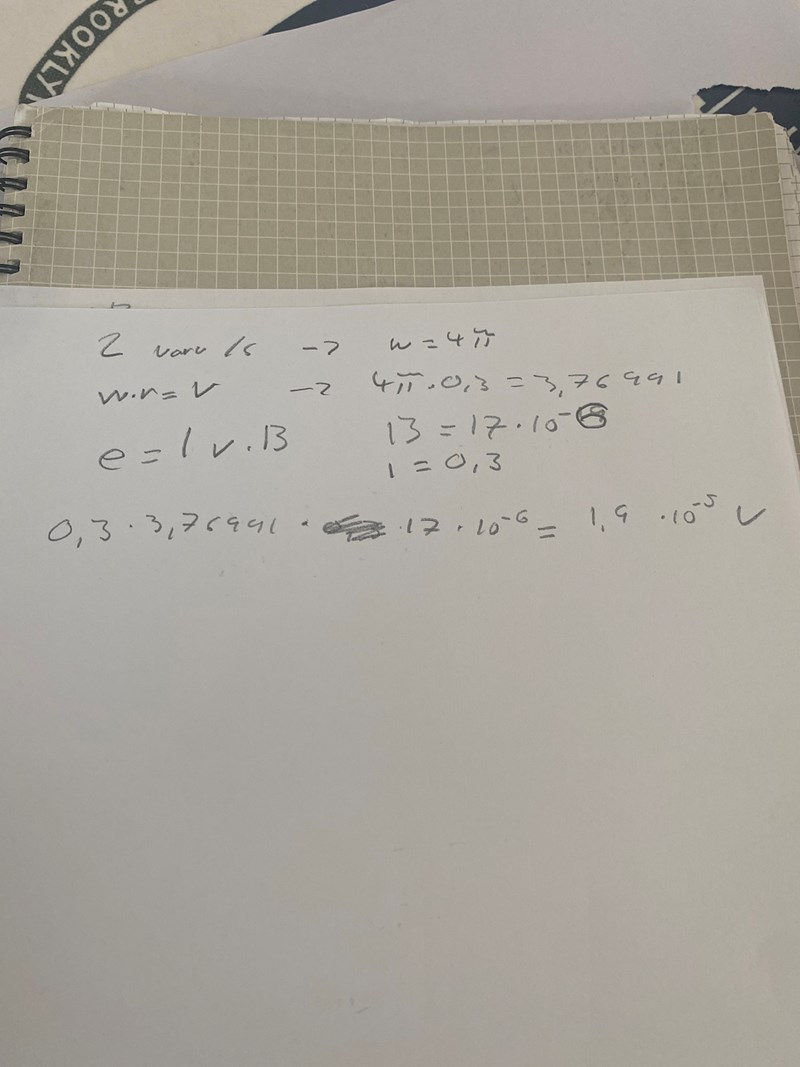 BROOKLY
2 varv /s -> w = 4π
w.r = v -> 4π.0,3 = 3,76991
e = l v . B
B = 17 . 10⁻⁶
l = 0,3
0,3 . 3,76991 . . 17 . 10⁻⁶ = 1,9 . 10⁻⁵ V